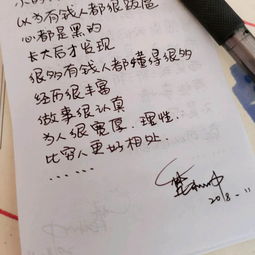 以为有钱人都很嚣张
心都是黑的
长大后才发现
很多有钱人都懂得很多
经历很丰富
做事很认真
为人很宽厚、理性.
比穷人更好相处.
......
2018.11